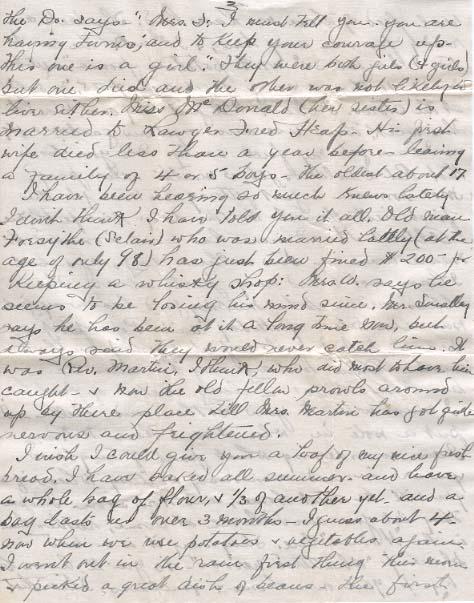 3
the Dr. says "Mrs. S: I must tell you you are
having Twins, and to keep your courage up
this one is a girl." They were both girls (4 girls)
but one died and the other was not likely to
live either. Miss McDonald (her sister) is
married to Lawyer Fred Heap. His first
wife died less than a year before leaving
a family of 4 or 5 boys - the oldest about 17.
I have been hearing so much knews lately
I don't think I have told you it all. Old man
Forsythe (Sclair) who was married lately (at the
age of only 98) has just been fined $200- for
keeping a whisky shop: Mrs W. says he
seems to be losing his mind since. Mr. Smalley
says he has been at it a long time now, but
always said they would never catch him. It
was Rev. Martin, I think, who did most to have him
caught - & now the old fellow prowls around
up by there place till Mrs. Martin has got quite
nervous and frightened.
I wish I could give you a loaf of my nice fresh
bread. I have baked all summer. and have
a whole bag of flour, & 1/3 of another yet. and a
bag lasts us over 3 months - I guess about 4-
now when we use potatoes & vegetables again
I went out in the rain first thing this morn
& picked a great dish of beans - the first